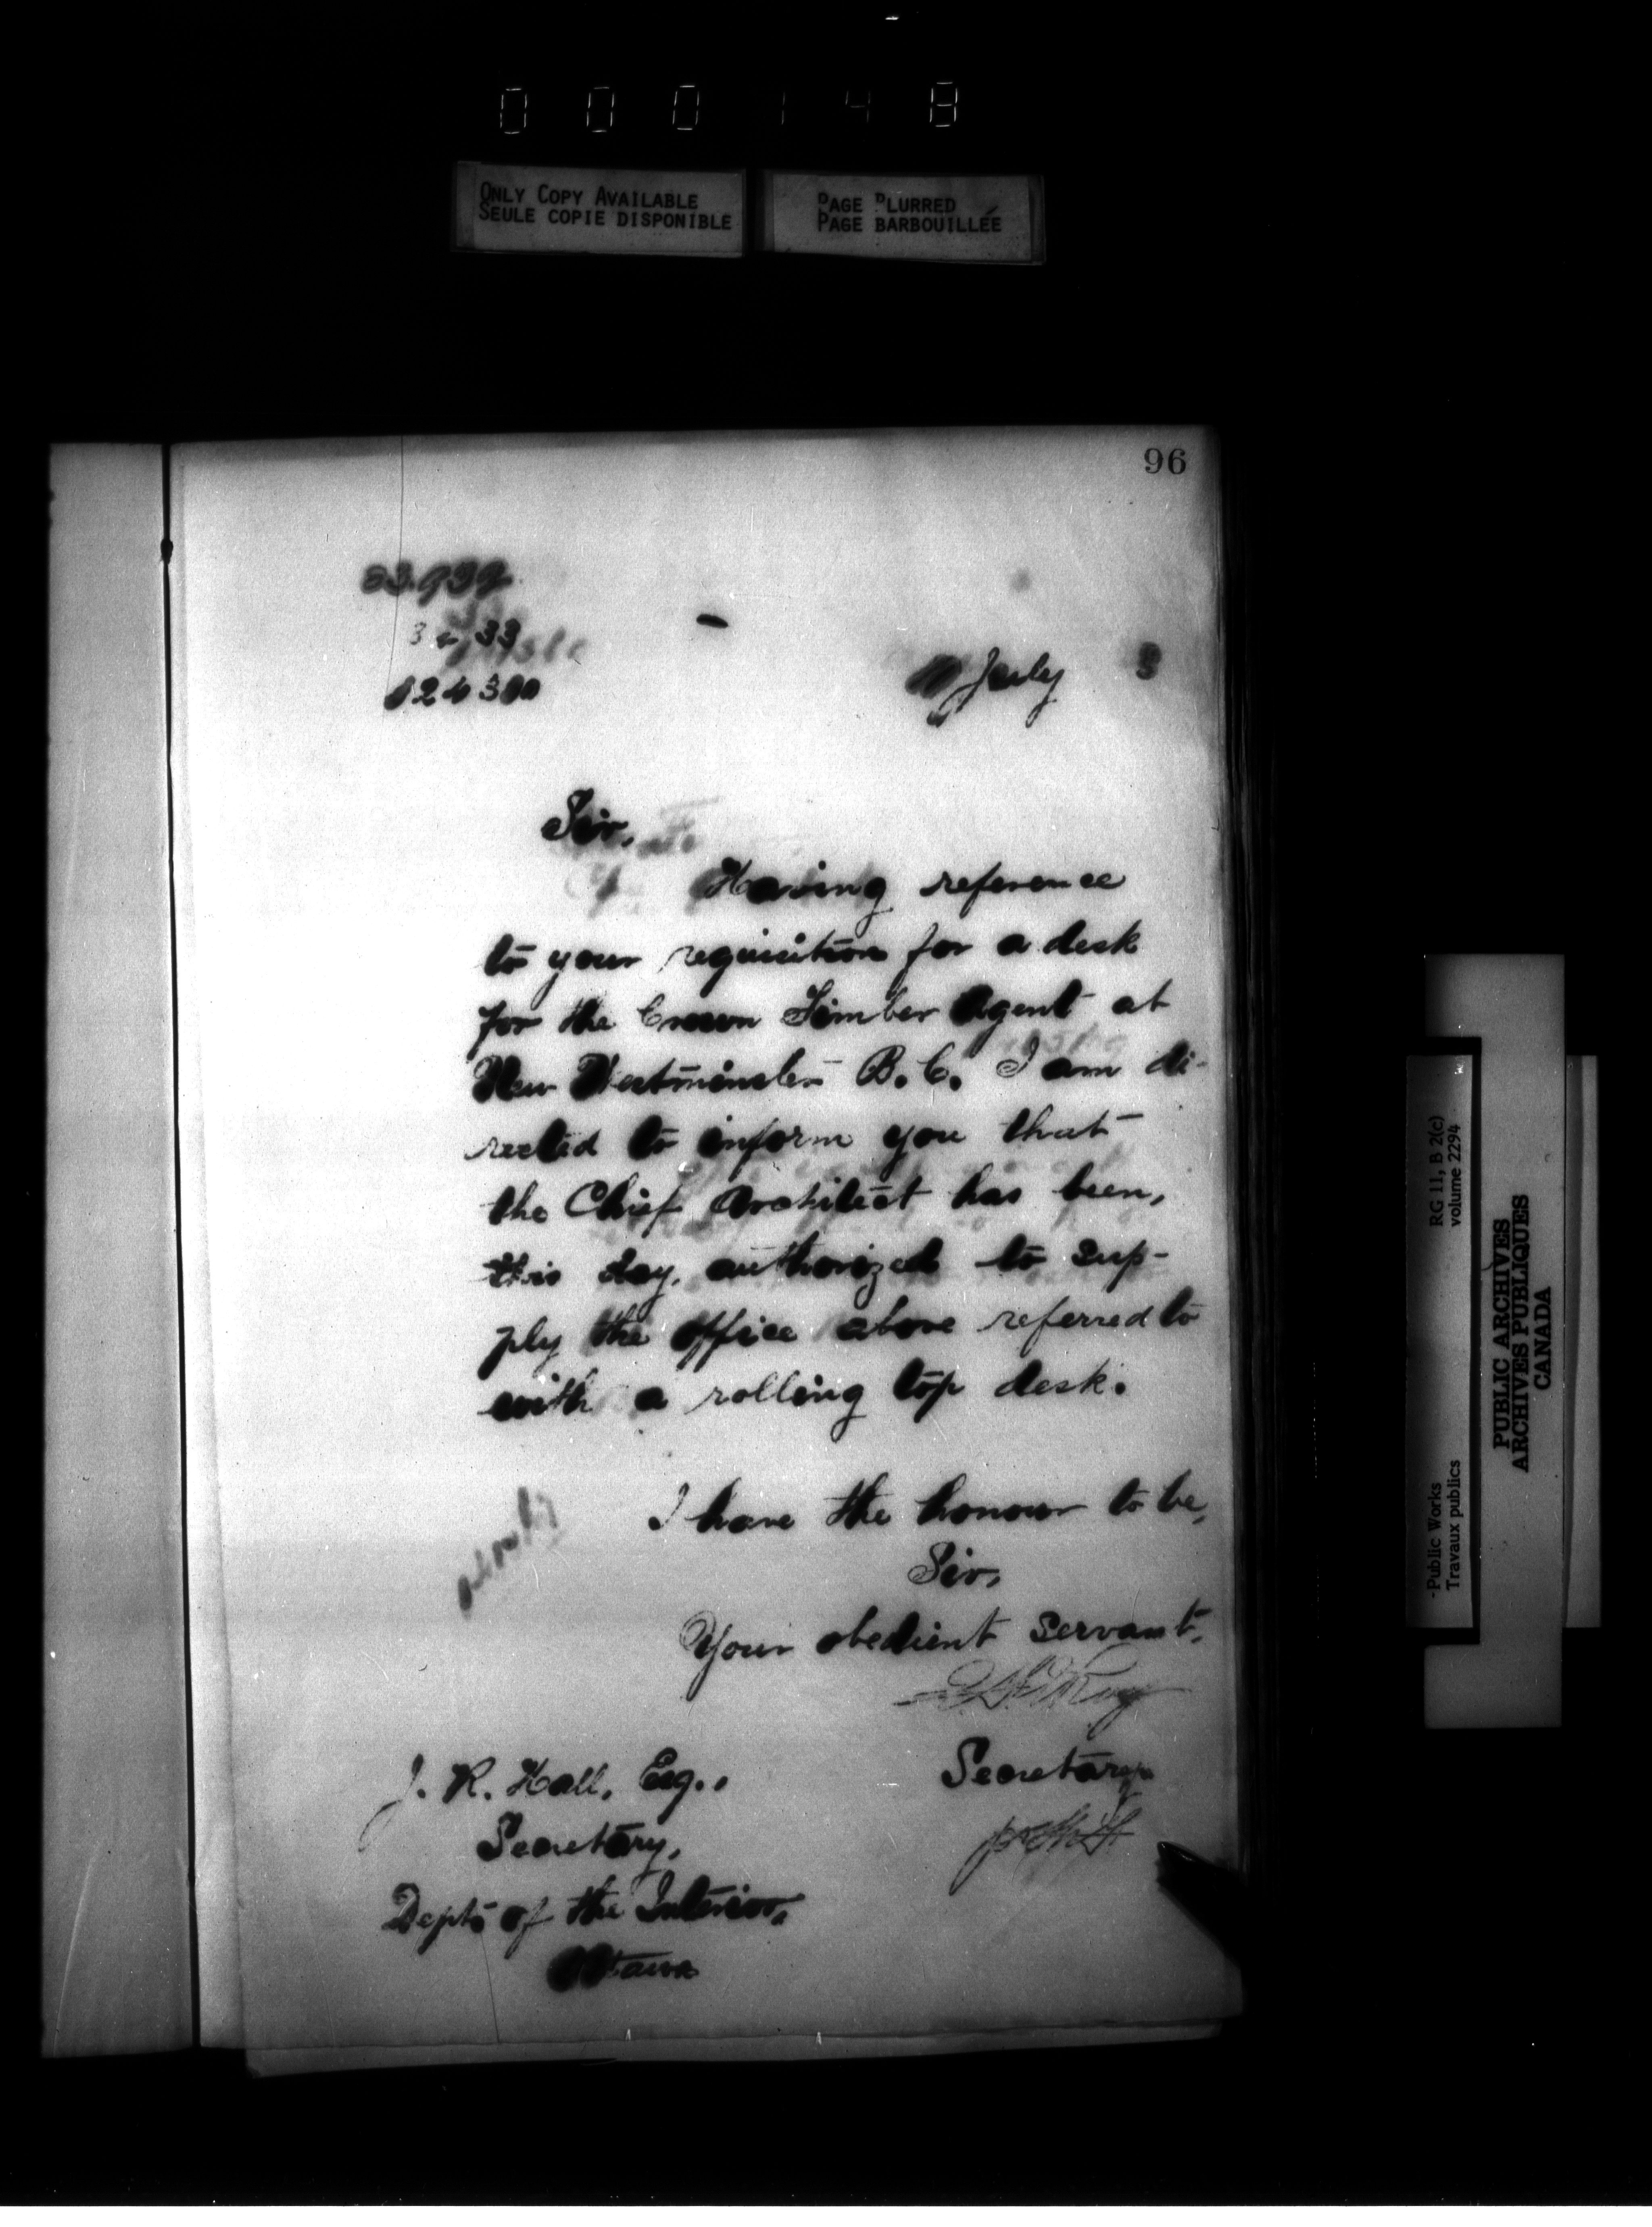 000148
ONLY COPY AVAILABLE
SEULE COPIE DISPONIBLE
PAGE BLURRED
PAGE BARBOUILLÉE
96
33
July 3
Sir,
Having reference
to your requisition for a desk
for the Crown Timber Agent at
New Westminster B.C. I am di-
rected to inform you that
the Chief Architect has been,
this day, authorized to sup-
ply the office above referred to
with a rolling top desk.
I have the honour to be,
Sir,
Your obedient servant,
Secretary
J. R. Hall, Esq.,
Secretary,
Dept. of the Interior,
Ottawa
RG 11, B 2(c)
volume 2294
-Public Works
Travaux publics
PUBLIC ARCHIVES
ARCHIVES PUBLIQUES
CANADA